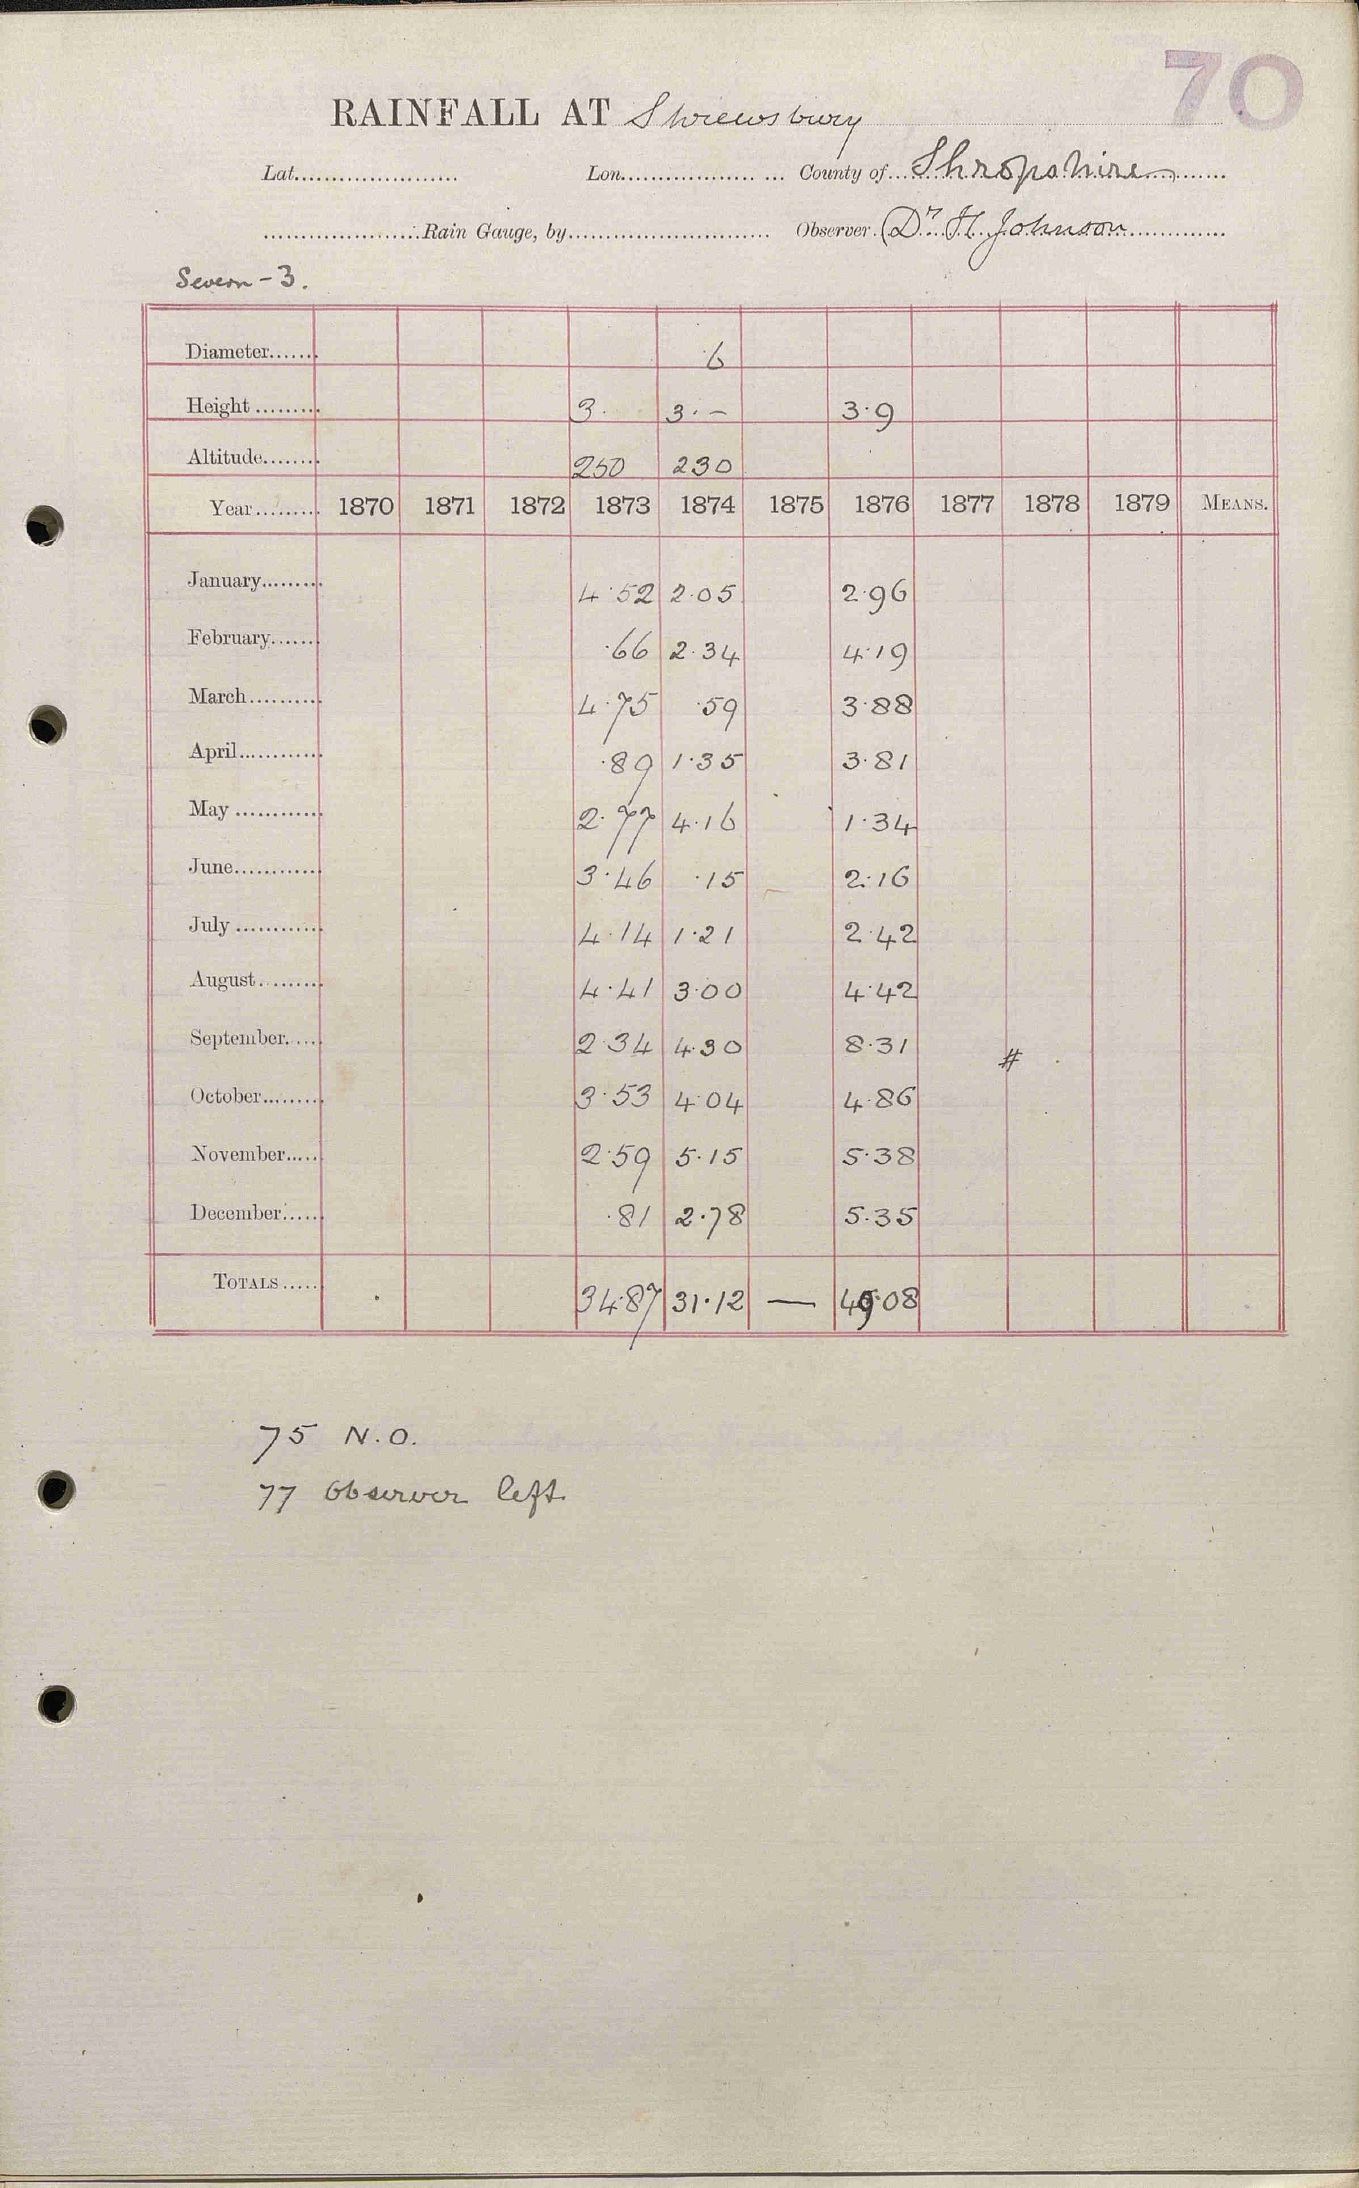 70
RAINFALL AT Shrewsbury
Lat. Lon. County of Shropshire
Rain Gauge, by Observer (Dr. H. Johnson
Severn - 3.
Diameter 6
Height 3. 3. - 3.9
Altitude 250 230
Year 1870 1871 1872 1873 1874 1875 1876 1877 1878 1879 MEANS.
January 4.52 2.05 2.96
February .66 2.34 4.19
March 4.75 .59 3.88
April .89 1.35 3.81
May 2.77 4.16 1.34
June 3.46 .15 2.16
July 4.14 1.21 2.42
August 4.41 3.00 4.42
September 2.34 4.30 8.31
#
October 3.53 4.04 4.86
November 2.59 5.15 5.38
December .81 2.78 5.35
TOTALS 34.87 31.12 — 49.08
75 N.O.
77 Observer left